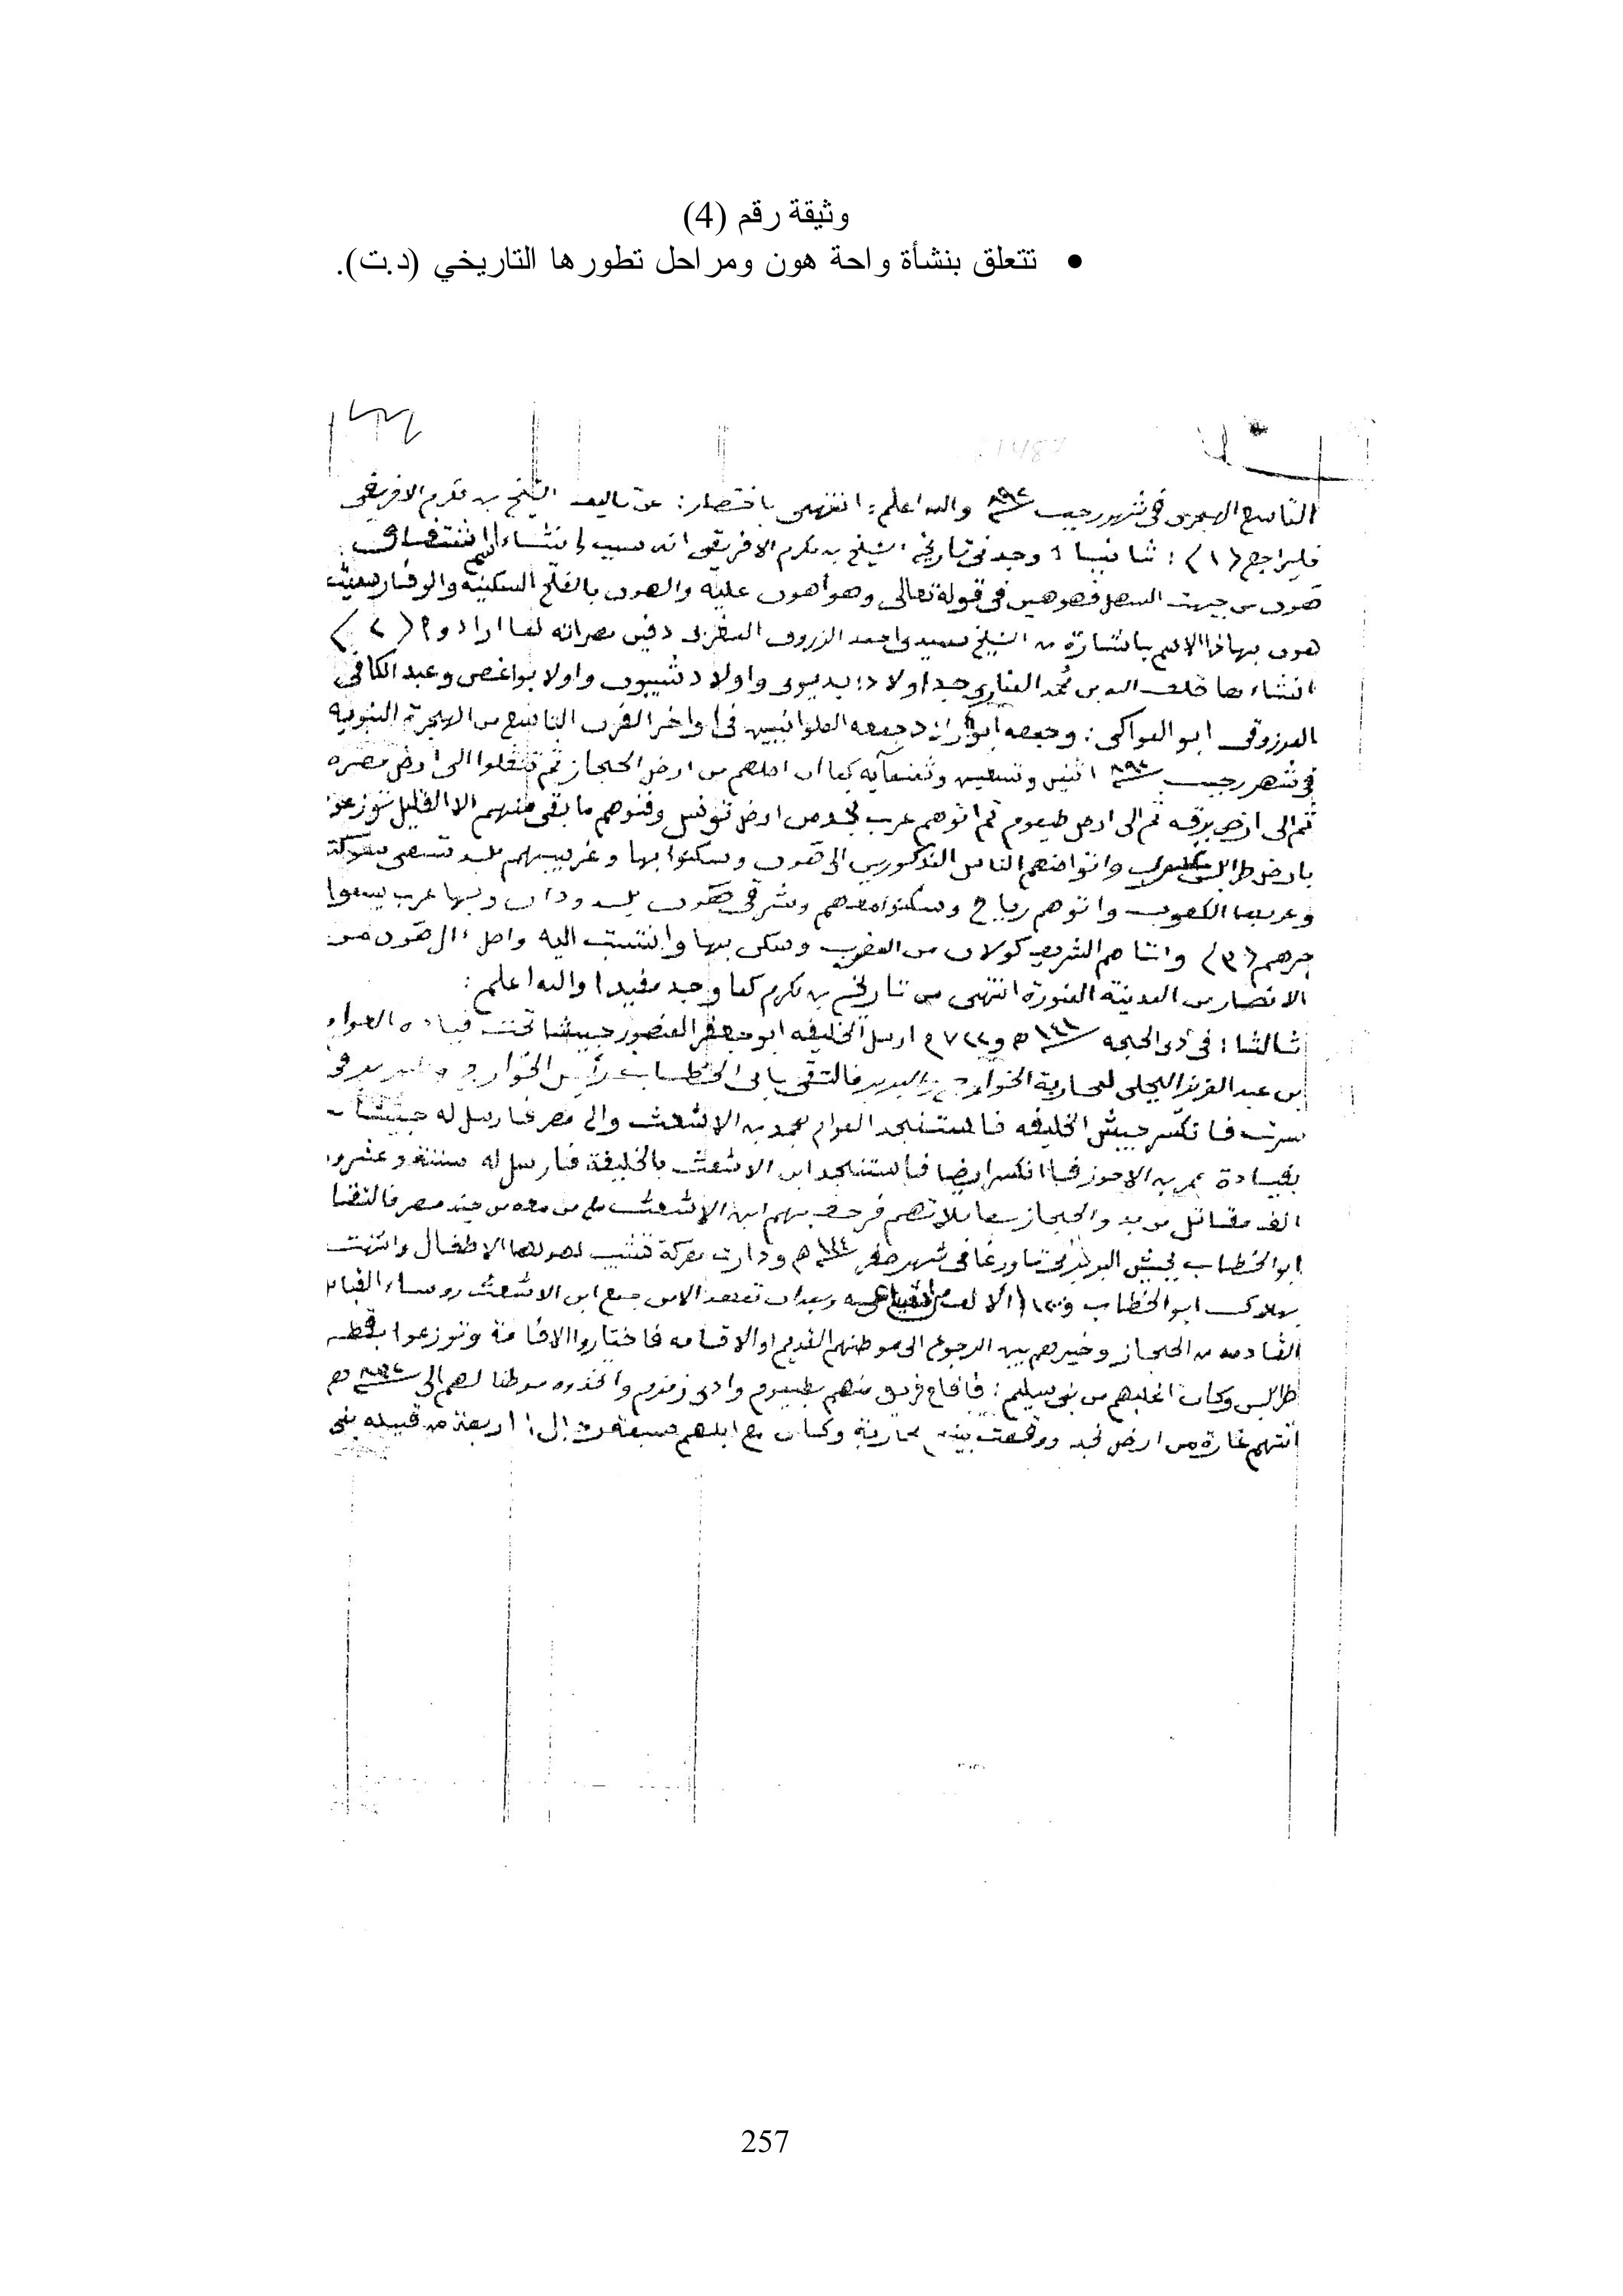 وثيقة رقم (4)
• تتعلق بنشأة واحة هون ومراحل تطورها التاريخي (د.ت).
التاسع الهجرى فى شهر رجب ٨٩٢ والله اعلم: انتهى باختصار: من تاليف الشيخ بن مكرم الافريقى
فليراجع (١): ثانيا: وجد فى تاريخ الشيخ بن مكرم الافريقى انه سبب انشاء اسم اشتقاق
هون من جهت السهل فهو هين فى قوله تعالى وهو اهون عليه والهون بالفتح السكينة والوقار سميت
هون بهاذا الاسم باشارة من الشيخ سيدى احمد الزروق المغربى دفين مصراته لما ارادو (٢)
انشاءها خلف الله بن محمد جد اولاد بديوى واولاد شيبون واولا بواغص وعبد الكافى
المرزوقى ابو العواكى: وجمعه ابو جمعه العلوانيين فى اواخر القرن التاسع من الهجرة النبوية
فى شهر رجب ٨٩٢ اثنين وتسعين وثمنمآيه كما ان اصلهم من ارض الحجاز ثم تنقلوا الى ارض مصره
ثم الى ارض برقه ثم الى ارض ثم اتوهم عرب نجد من ارض تونس وفنوهم ما بقى منهم الا القليل تنوزعوا
بارض طرابلس الغرب وانواضهم الناس المذكورين الى هون وسكنوا بها وغربيهم بلد تسمى سوكنة
وعربها الكعوب واتوهم رياح وسكنوا معهم وشرقى هون بلد ودان وبها عرب يسموا
جرهم (٣) واتاهم الشريف كولان من المغرب وسكن بها وانتسبت اليه واصل ءال هون من
الانصار من المدينة المنورة انتهى من تاريخ بن مكرم كما وجد مفيدا والله اعلم:
ثالثا: فى ذى الحجه ١٤١ هـ و ارسل الخليفه ابو جعفر المنصور جيشا تحت قياده العوام
ابن عبد العزيز البجلى لمحاربة الخوارج والبربر فالتقى بابى الخطاب رئيس الخوارج والبربر فى
سرت فانكسر جيش الخليفه فاستنجد العوام بمحمد بن الاشعث والى مصر فارسل له جيشا
بقيادة عمر بن الاحوز فاانكسر ايضا فاستنجد ابن الاشعث بالخليفة فارسل له ستة وعشرون
الف مقاتل من نجد والحجاز بعائلاتهم فزحف بهم ابن الاشعث مع من معه من جند مصر فالتقا
ابو الخطاب بجيش البربر فى تاورغا فى شهر صفر ١٤٤ هـ ودارت معركة تشيب لهولها الاطفال وانتهت
بهلاك ابو الخطاب و الالف من اتباعه وبعدان تمهد الامن جمع ابن الاشعث روساء القبائل
القادمه من الحجاز وخيرهم بين الرجوع الى موطنهم القديم او الاقامه فاختاروا الاقامة وتوزعوا بقطر
طرابلس وكان اغلبهم من بنى سليم: فاقام فريق منهم وادى زمزم واتخذوه موطنا لهم الى هـ
اتتهم غارة من ارض نجد ووقعت بينهم محاربة وكان مع ابلهم سبعة اربعة من قبيله بنى
257